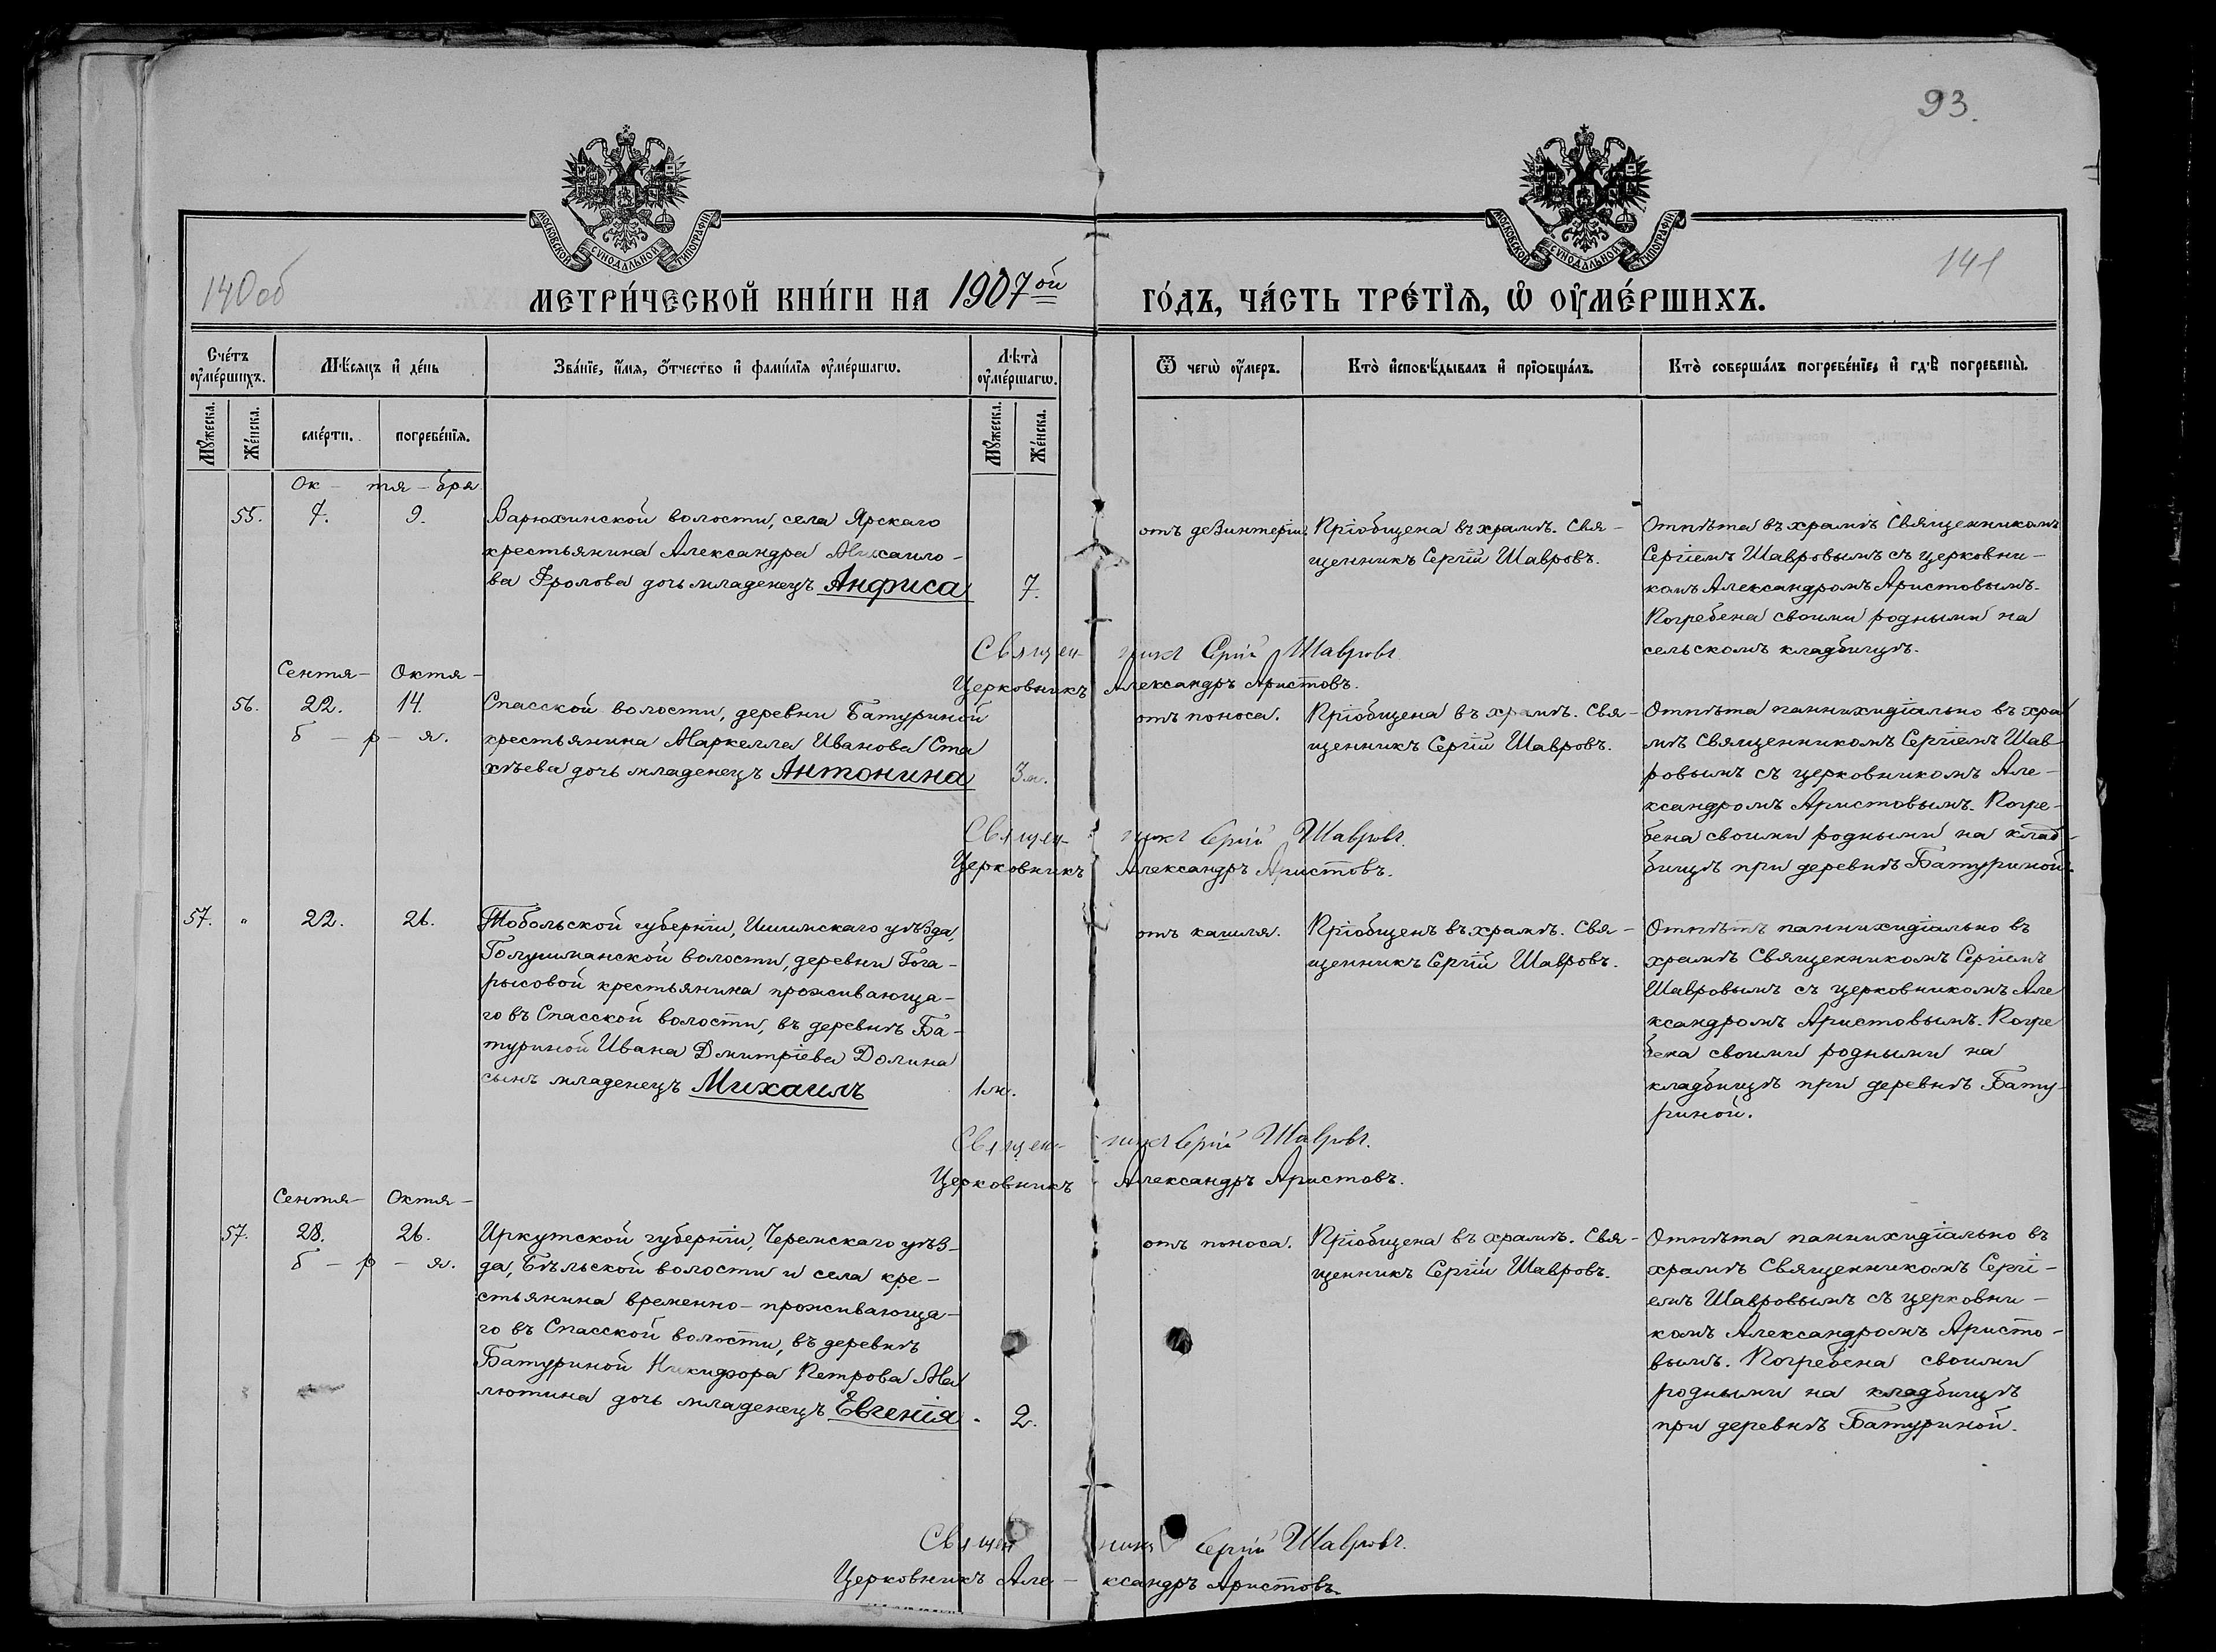 93.
МОСКОВСКОЙ СѴНОДАЛЬНОЙ ТИПОГРАФІИ
МОСКОВСКОЙ СѴНОДАЛЬНОЙ ТИПОГРАФІИ
140об
141
МЕТРИ́ЧЕСКОЙ КНИ́ГИ НА 1907ой ГО́ДЪ, ЧА́СТЬ ТРЕ́ТЇѦ, Ѡ҆ ОУ҆МЕ́РШИХЪ.
Сче́тъ оу҆ме́ршихъ.
Мꙋ́жеска.
Же́нска.
Мѣ́сяцъ и҆ де́нь
сме́рти.
погребе́нїѧ.
Зва́нїе, и҆́мѧ, ѻ҆́тчество и҆ фами́лїѧ оу҆ме́ршагѡ.
Лѣта̀ оу҆ме́ршагѡ.
Мꙋ́жеска.
Же́нска.
Ѿ чегѡ̀ оу҆́меръ.
Кто̀ и҆сповѣ́дывалъ и҆ прїобща́лъ.
Кто̀ соверша́лъ погребе́нїе, и҆ гдѣ̀ погребены̀.
Ок - тя - бря
55. 7. 9.
Варюхинской волости, села Ярскаго
крестьянина Александра Михаило-
ва Фролова дочь младенецъ Анфиса
7.
отъ дезинтеріи.
Пріобщена въ храмѣ. Свя-
щенникъ Сергій Шавровъ.
Отпѣта въ храмѣ Священникомъ
Сергіемъ Шавровымъ съ церковни-
комъ Александромъ Аристовымъ.
Погребена своими родными на
сельскомъ кладбищѣ.
Священникъ Сергій Шавровъ
Церковникъ Александръ Аристовъ.
Сентя- Октя-
56. 22. 14.
б - р - я.
Спасской волости, деревни Батуриной
крестьянина Маркелла Иванова Ста
хѣева дочь младенецъ Антонина
3м.
отъ поноса.
Пріобщена въ храмѣ. Свя-
щенникъ Сергій Шавровъ.
Отпѣта паннихидіально въ хра
мѣ Священникомъ Сергіемъ Шав
ровымъ съ церковникомъ Але-
ксандромъ Аристовымъ. Погре-
бена своими родными на клад-
бищѣ при деревнѣ Батуриной.
Священникъ Сергій Шавровъ.
Церковникъ Александръ Аристовъ.
57. " 22. 26.
Тобольской губерніи, Ишимскаго уѣзда,
Голушманской волости, деревни Гога-
рысовой крестьянина проживающа-
го въ Спасской волости, въ деревнѣ Ба-
туриной Ивана Дмитріева Долина
сынъ младенецъ Михаилъ
1м.
отъ кашля.
Пріобщенъ въ храмѣ. Свя-
щенникъ Сергій Шавровъ.
Отпѣтъ паннихидіально въ
храмѣ Священникомъ Сергіемъ
Шавровымъ съ церковникомъ Але
ксандромъ Аристовымъ. Погре
бена своими родными на
кладбищѣ при деревнѣ Бату-
риной.
Священникъ Сергій Шавровъ.
Церковникъ Александръ Аристовъ.
Сентя- Октя-
57. 28. 26.
б - р - я.
Иркутской губерніи, Черемскаго уѣз-
да, Бѣльской волости и села кре-
стьянина временно-проживающа-
го въ Спасской волости, въ деревнѣ
Батуриной Никифора Петрова Ма
лютина дочь младенецъ Евгенія.
2.
отъ поноса.
Пріобщена въ храмѣ. Свя-
щенникъ Сергій Шавровъ.
Отпѣта паннихидіально въ
храмѣ Священникомъ Сергі-
емъ Шавровымъ съ церковни-
комъ Александромъ Аристо-
вымъ. Погребена своими
родными на кладбищѣ
при деревнѣ Батуриной.
Священникъ Сергій Шавровъ.
Церковникъ Але-ксандръ Аристовъ.